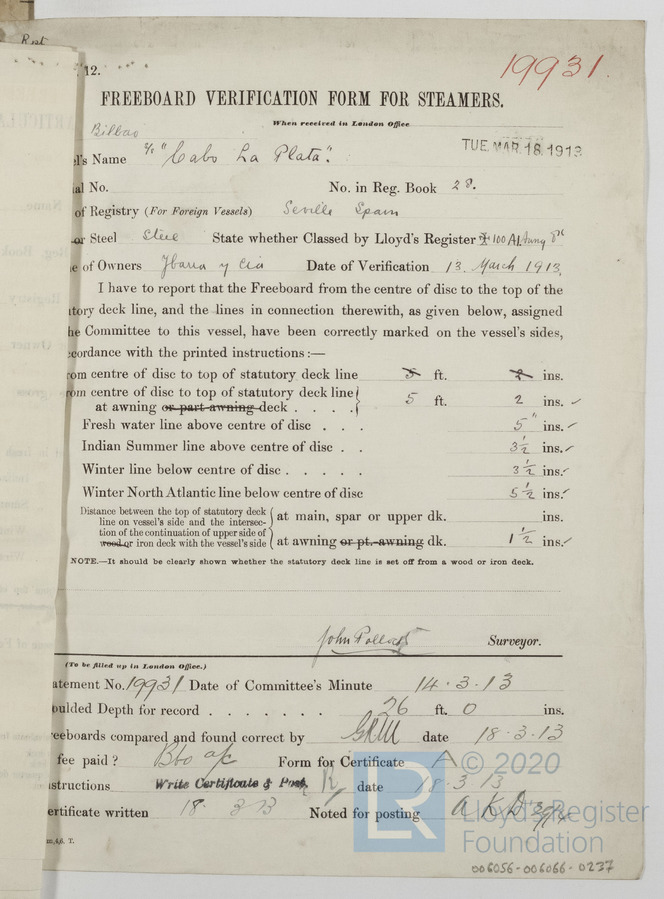 Rpt.
12.
19931.
FREEBOARD VERIFICATION FORM FOR STEAMERS.
When received in London Office
Bilbao
TUE. MAR. 18. 1913
el's Name S/S "Cabo La Plata".
ial No. No. in Reg. Book 28.
of Registry (For Foreign Vessels) Seville Spain
or Steel Steel State whether Classed by Lloyd's Register 100 A1. Awng Dk
e of Owners Ybarra y Cia Date of Verification 13. March 1913,
I have to report that the Freeboard from the centre of disc to the top of the
tory deck line, and the lines in connection therewith, as given below, assigned
he Committee to this vessel, have been correctly marked on the vessel's sides,
ccordance with the printed instructions:—
om centre of disc to top of statutory deck line 5 ft. 2 ins.
rom centre of disc to top of statutory deck line
at awning or part awning deck . . . . 5 ft. 2 ins. ✓
Fresh water line above centre of disc . . . 5" ins. ✓
Indian Summer line above centre of disc . . 3½ ins. ✓
Winter line below centre of disc . . . . . 3½ ins. ✓
Winter North Atlantic line below centre of disc 5½ ins. ✓
Distance between the top of statutory deck
line on vessel's side and the intersec-
tion of the continuation of upper side of
wood or iron deck with the vessel's side
at main, spar or upper dk. ins.
at awning or pt.-awning dk. 1½ ins. ✓
NOTE.—It should be clearly shown whether the statutory deck line is set off from a wood or iron deck.
John Pollock Surveyor.
(To be filled up in London Office.)
atement No. 19931 Date of Committee's Minute 14.3.13
oulded Depth for record . . . . . . . 26 ft. 0 ins.
reeboards compared and found correct by date 18.3.13
fee paid ? Bbo a/c Form for Certificate A
structions Write Certificate & Post. date 18.3.13
ertificate written 18. 3 13 Noted for posting
m,4,6. T.
© 2020
LR
Lloyd's Register
Foundation
006056-006066-0237